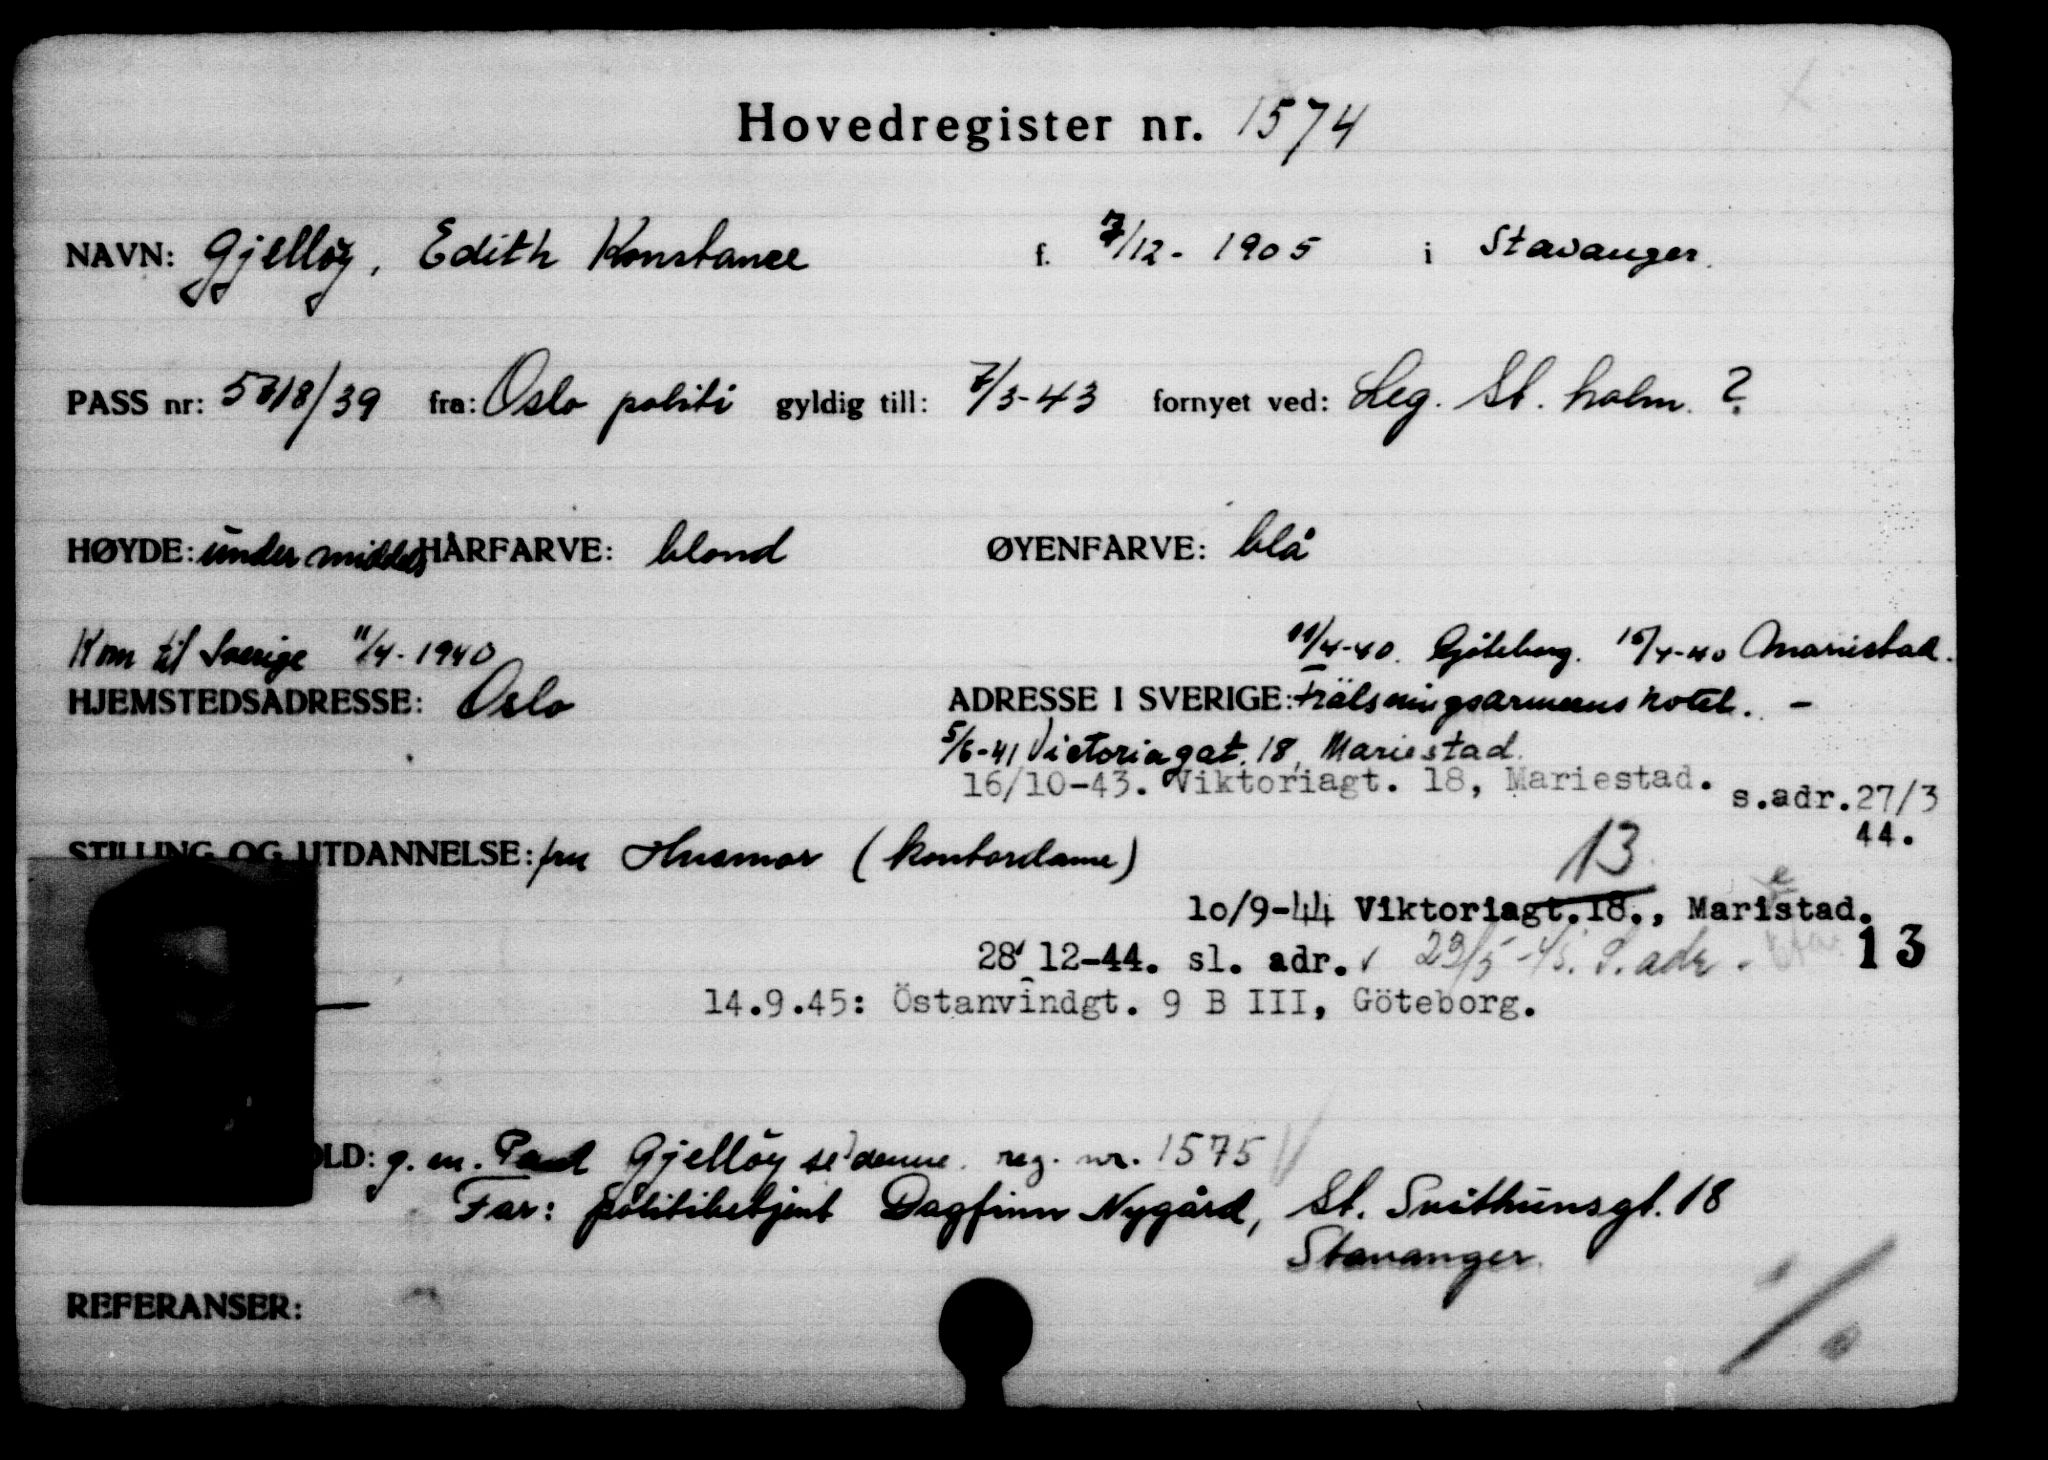 Hovedregister nr. 1574
NAVN: Gjelløy, Edith Konstance f. 7/12-1905 i Stavanger.
PASS nr: 5718/39 fra: Oslo politi gyldig till: 7/3-43 fornyet ved: Leg. St. holm. ?
HØYDE: under middels HÅRFARVE: blond ØYENFARVE: blå
Kom til Sverige 11/4-1940 11/4-40. Gøteborg. 15/4-40 Mariestad.
HJEMSTEDSADRESSE: Oslo ADRESSE I SVERIGE: Frälsningsarmeens hotel. -
5/6-41 Victoriagat. 18, Mariestad.
16/10-43. Viktoriagt. 18, Mariestad. s.adr.27/3
44.
STILLING OG UTDANNELSE: fru Husmor (kontordame) 13
10/9-44 Viktoriagt.18., Maristad.
e
28/12-44. sl. adr. 23/5-45. S. adr. 13
14.9.45: Östanvindgt. 9 B III, Göteborg.
OLD: g. m. Paul Gjelløy se denne. reg. nr. 1575
Far: politibetjent Dagfinn Nygård, St. Svithunsgt. 18
Stavanger.
REFERANSER: